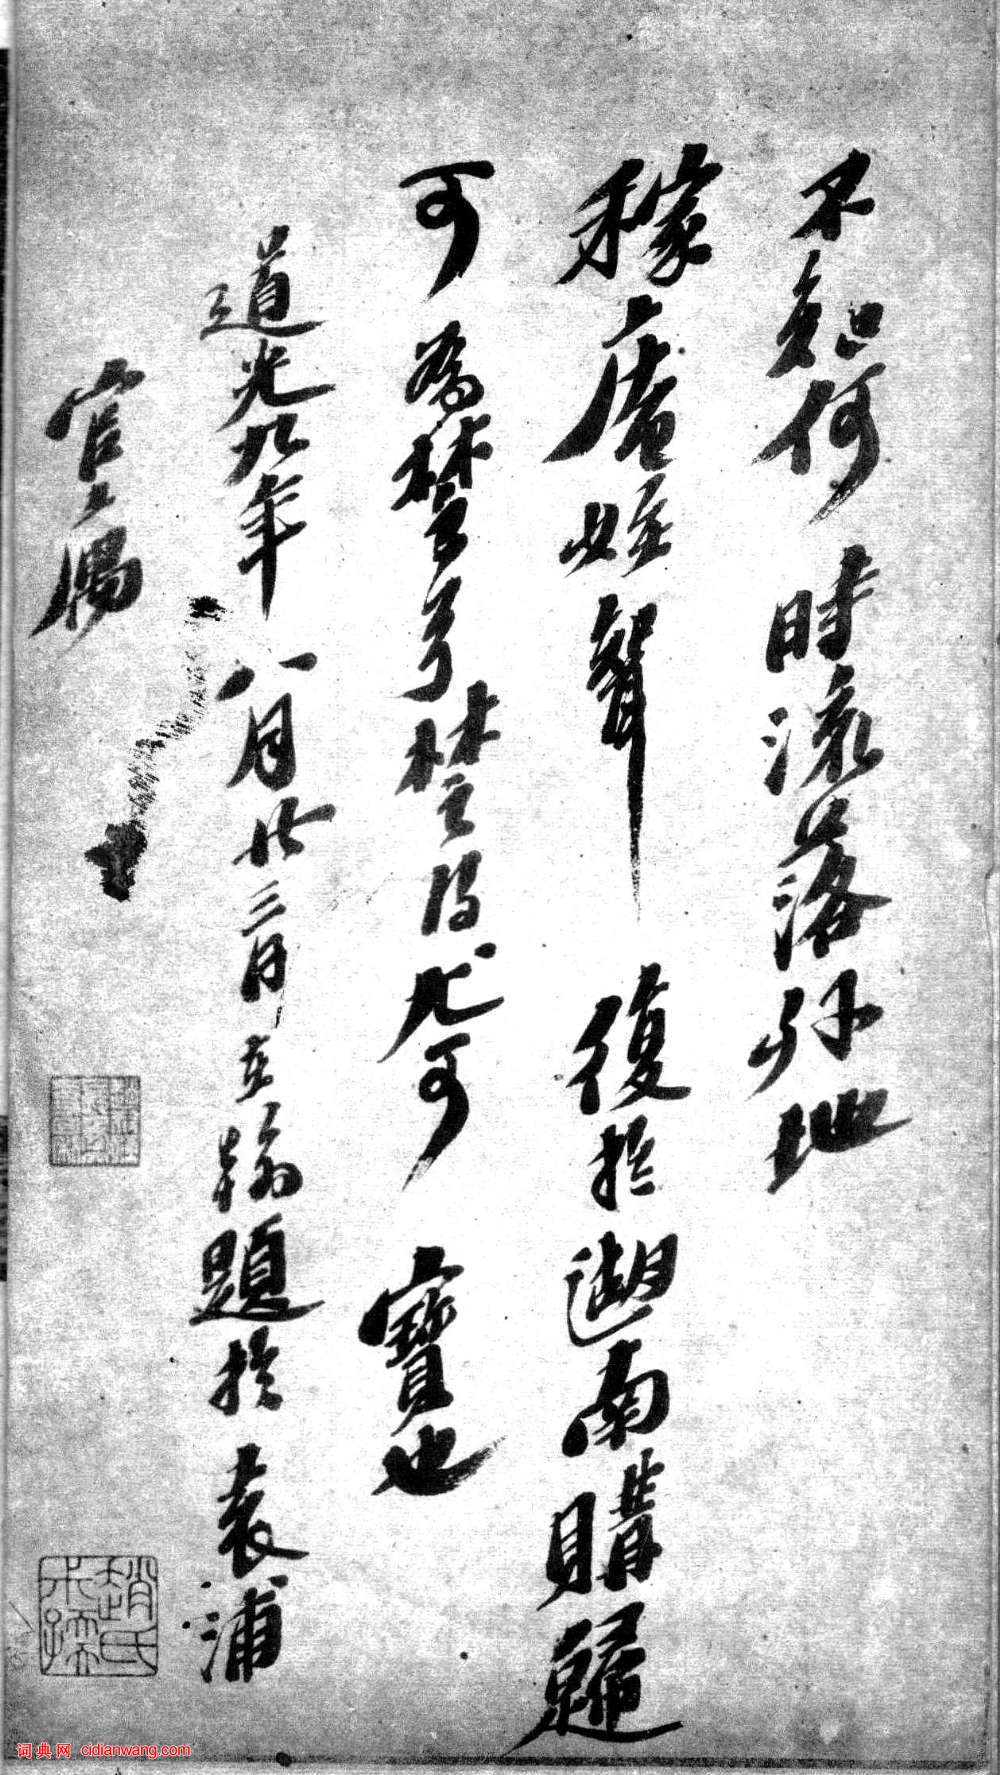 不知何時流落外地
稼庵姪聟復於湖南購歸
可為楚弓楚得尤可寶也
道光九年八月廿三日在翰題於袁浦
官
趙氏
词典网 cidianwang.com